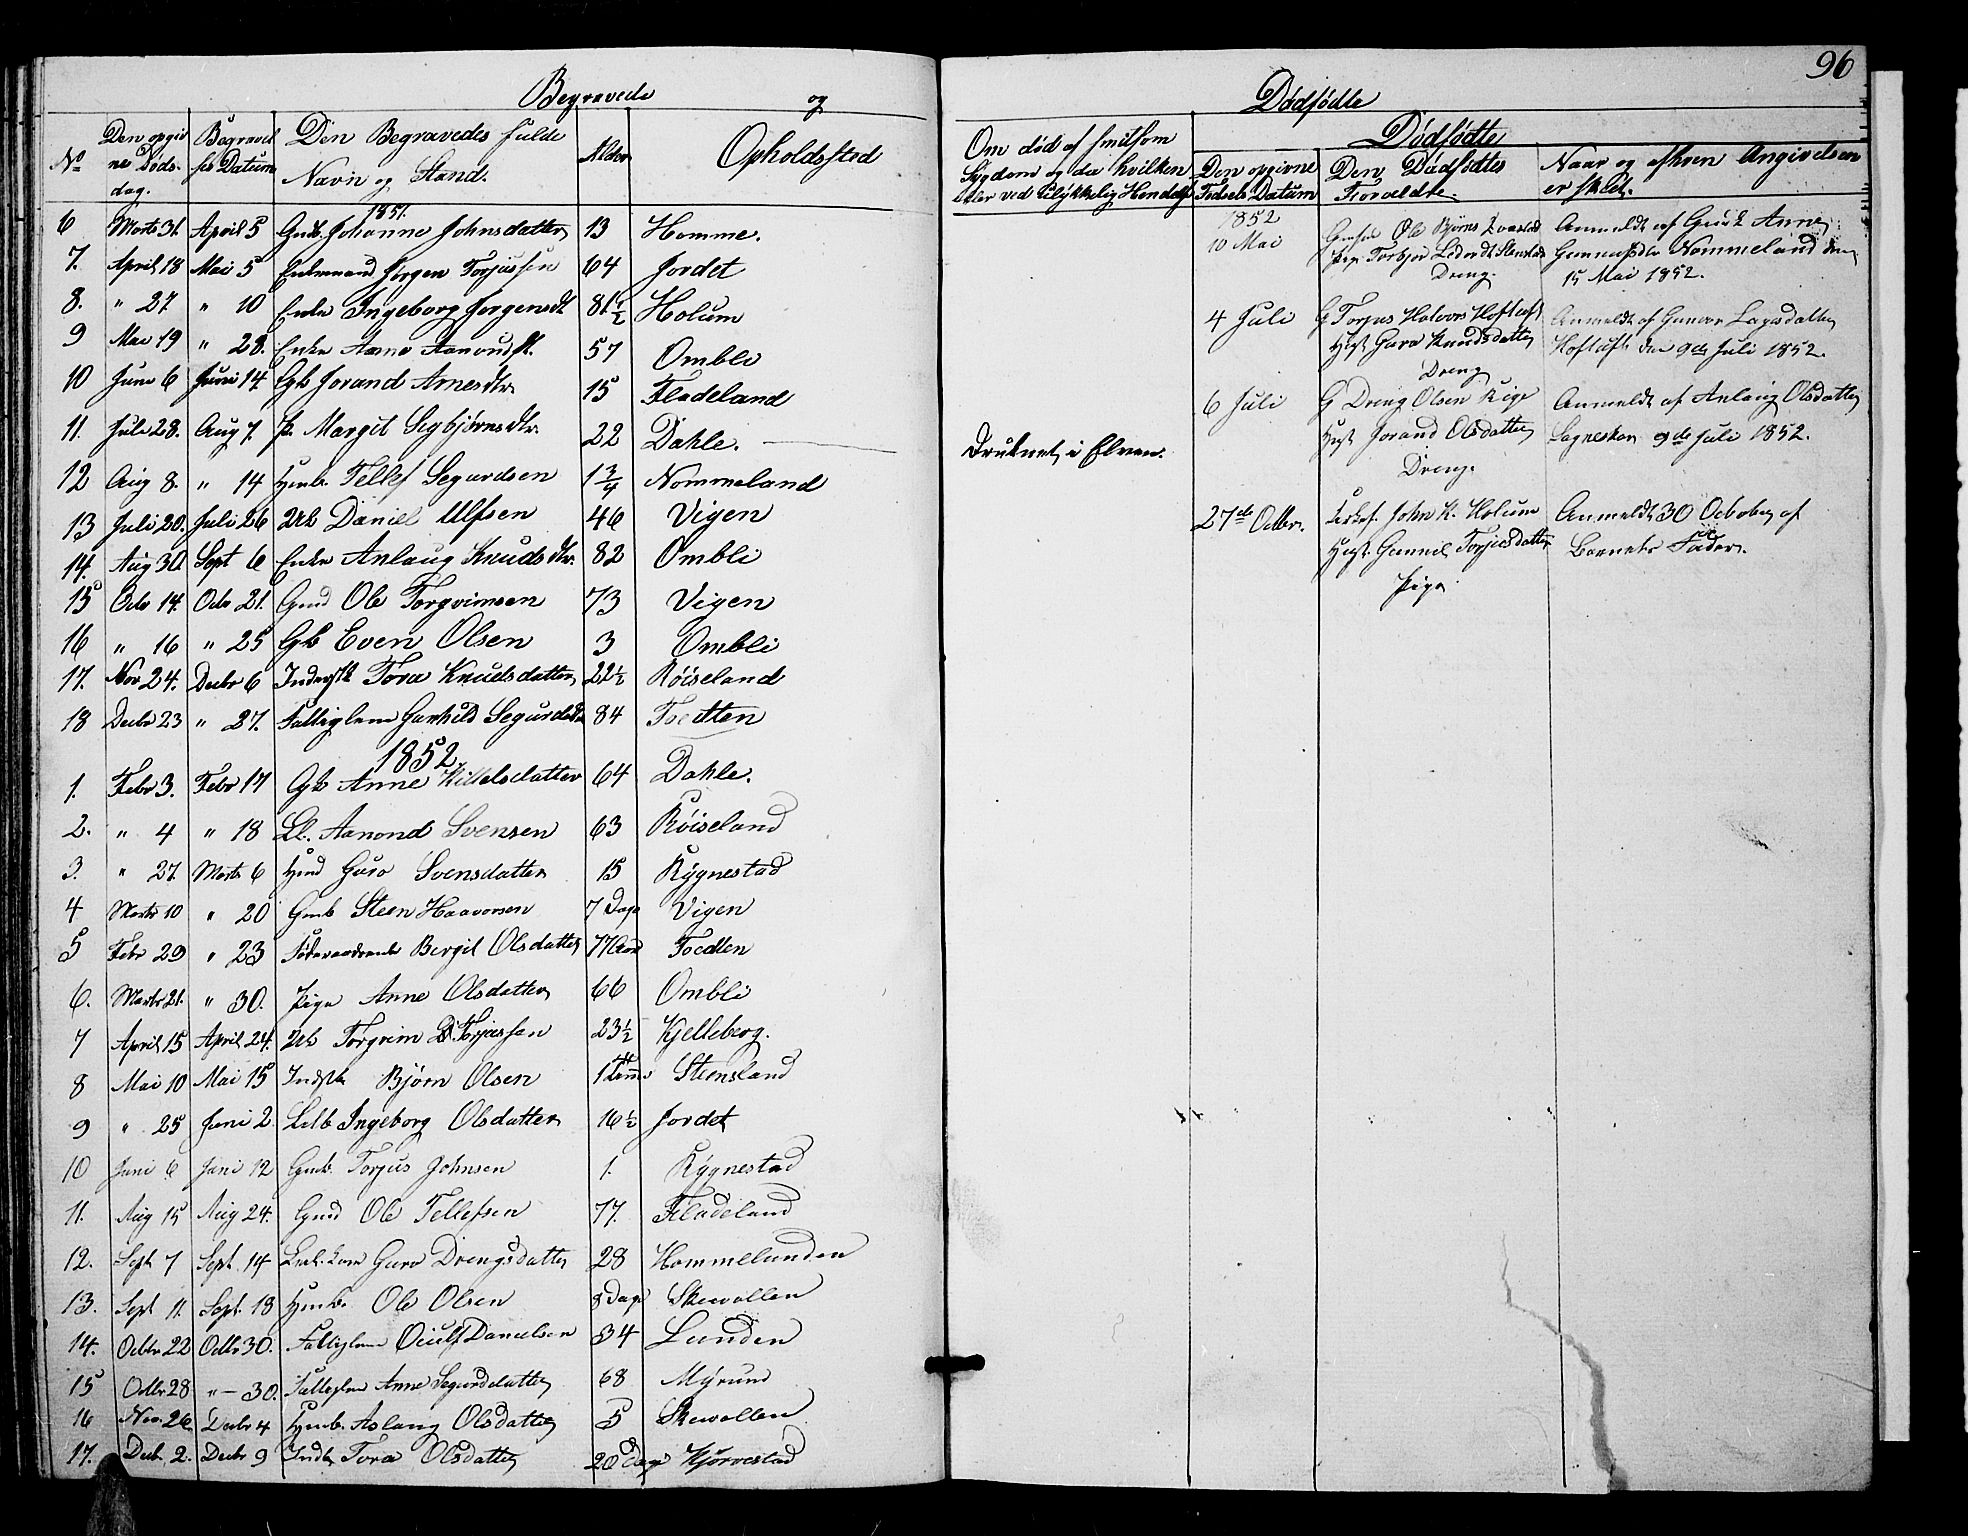 96
Begravede og Dødfødte
No Den opgivne Døds-dag. Begravelses Datum Den Begravedes fulde Navn og Stand. Alder Opholdssted
Om död af smitsom Sygdom og da hvilken eller ved Ulykkelig Hendelse
Dødfødte
Den opgivne Fødsels Datum Den Dødfødtes Forældre Naar og afhven Angivelsen er skeet.
1851.
6 Marts 31. April 5 Gmb. Johanne Johnsdatter 13 Homme.
7. April 18 Mai 5 Enkemand Jørgen Torjussen 64 Jordet
8. " 27. " 10 Enke Ingeborg Jørgensdt 81 1/2 Holum
9 Mai 19 " 28. Enke Anne Aanoundsdt. 57 Ombli
10 Juni 6 Juni 14. Gb Jorand Arnesdtr. 15 Fladeland
11. Juli 28. Aug 7. P. Margit Sigbjørnsdtr. 22 Dahle. Druknet i Elven.
12 Aug 8. " 14 Hmb. Tellef Segurdsen 1 3/4 Nommeland
13 Juli 20. Juli 26 Daniel Ulfsen 46 Vigen
14. Aug 30. Sept 6 Enke Anlaug Knudsdtr. 82 Ombli
15 Octr 14. Octr 21. Gmd Ole Torgrimsen 73 Vigen
16 " 16 " 25 Gb Even Olsen 3 Ombli
17. Nov 24. Decbr 6 Inderstk Tora Knudsdatter 22 1/2 Røiseland
18 Decbr 23 " 27. Fattiglem Gunhild Segurdsdtr 84 Toedten
1852
1. Febr 3. Febr 17 Gk Anne Kittelsdatter 64 Dahle.
2. " 4 " 18 Aanond Svensen 63 Røiseland
3. " 27. Marts 6 Hmd Guro Svensdatter 15 Rygnestad
4 Marts 10 " 20 Gmb Steen Haavorsen 7 Dage Vigen
5 Febr 29 " 23 Bergit Olsdatter 77 Aar Toedten
6. Marts 21. " 30. Pige Anne Olsdatter 66 Ombli
7 April 15 April 24. Torgrim Torjussen 23 1/2 Kjelleberg.
8 Mai 10 Mai 15 Indstb Bjørn Olsen 1 Time Steensland
9 " 25 Juni 2. Ingeborg Olsdatter 16 1/2 Jordet
10 Juni 6 Juni 12 Gmb. Torjus Johnsen 1. Rygnestad
11. Aug 15 Aug 24. Gmd Ole Tellefsen 77. Fladeland
12. Sept 7 Sept. 14 Guro Drengsdatter 28 Hommelunden
13. Sept 11. Sept. 18 Hmb. Ole Olsen 8 Dage Skevollen
14. Octbr 22 Octbr 30. Fattiglem Danielsen 34 Lunden
15 Octbr 28 " – 30. Fattiglem Anne Segurdsdatter 68 Myrund
16 Nov. 26 Decbr 4 Hmb. Aslaug Olsdatter 5 Skevollen
17. Decb. 2. Decbr 9 Indb. Tora Olsdatter 20 Dage Kjørvestad
1852
10 Mai Ole Bjørns Dreng. Anmeldt af Anne Nommeland den 15 Mai 1852.
4 Juli G Torjus Halvors Hoftuft Hust Guro Knudsdatter Dreng Anmeldt af Gunvor Hoftuft den 9de Juli 1852.
6 Juli G Dreng Olsen Rige Hust Jorand Olsdatter Dreng. Anmeldt af Anlaug Olsdatter 9de Juli 1852.
27de Octbr. John K. Holum Hust. Gunnil Torjusdatter Pige Anmeldt 30 October af Barnets Fader.